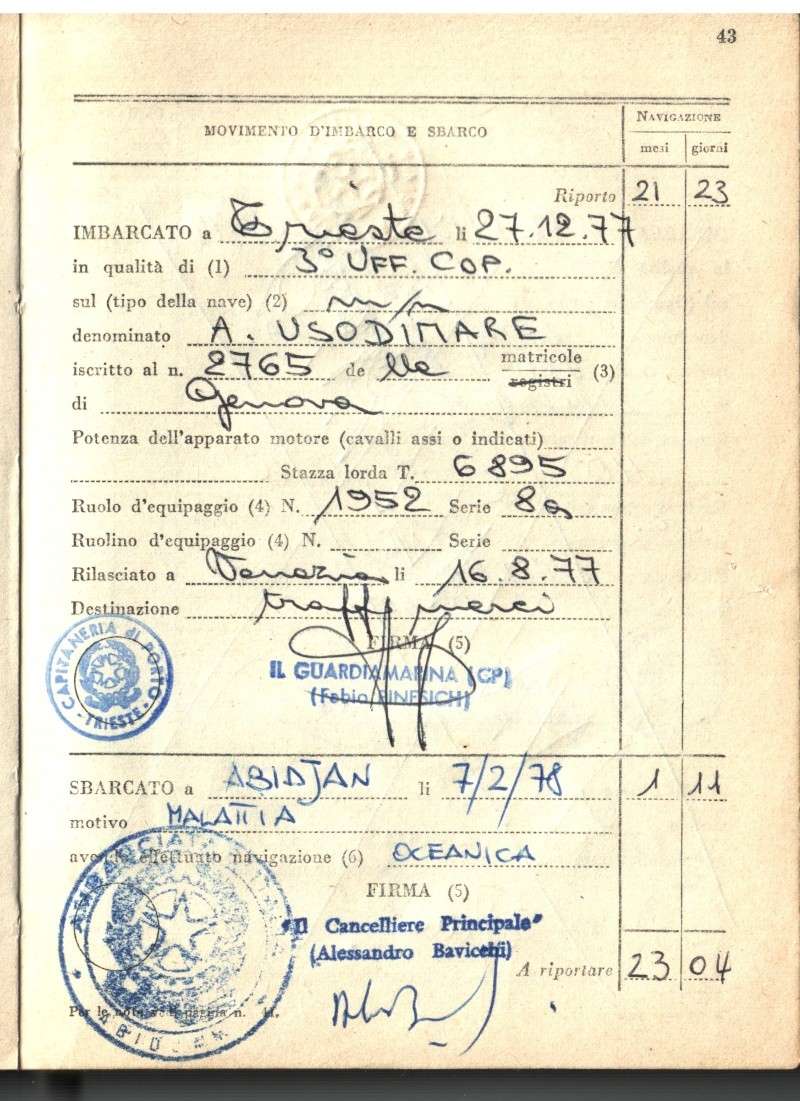 43
MOVIMENTO D'IMBARCO E SBARCO
NAVIGAZIONE
mesi giorni
Riporto 21 23
IMBARCATO a Trieste li 27.12.77
in qualità di (1) 3° UFF. COP.
sul (tipo della nave) (2) m/n
denominato A. USODIMARE
iscritto al n. 2765 de lle matricole
registri (3)
di Genova
Potenza dell'apparato motore (cavalli assi o indicati)
Stazza lorda T. 6895
Ruolo d'equipaggio (4) N. 1952 Serie 8a
Ruolino d'equipaggio (4) N. Serie
Rilasciato a Venezia li 16.8.77
Destinazione traff merci
FIRMA (5)
CAPITANERIA di PORTO
- TRIESTE -
IL GUARDIAMARINA (CP)
(Fabio FINESICH)
SBARCATO a ABIDJAN li 7/2/78 1 11
motivo MALATTIA
avendo effettuato navigazione (6) OCEANICA
FIRMA (5)
AMBASCIATA D'ITALIA
ABIDJAN
"Il Cancelliere Principale"
(Alessandro Bavicchi)
A riportare 23 04
Per le note vedi pagina n. 41.